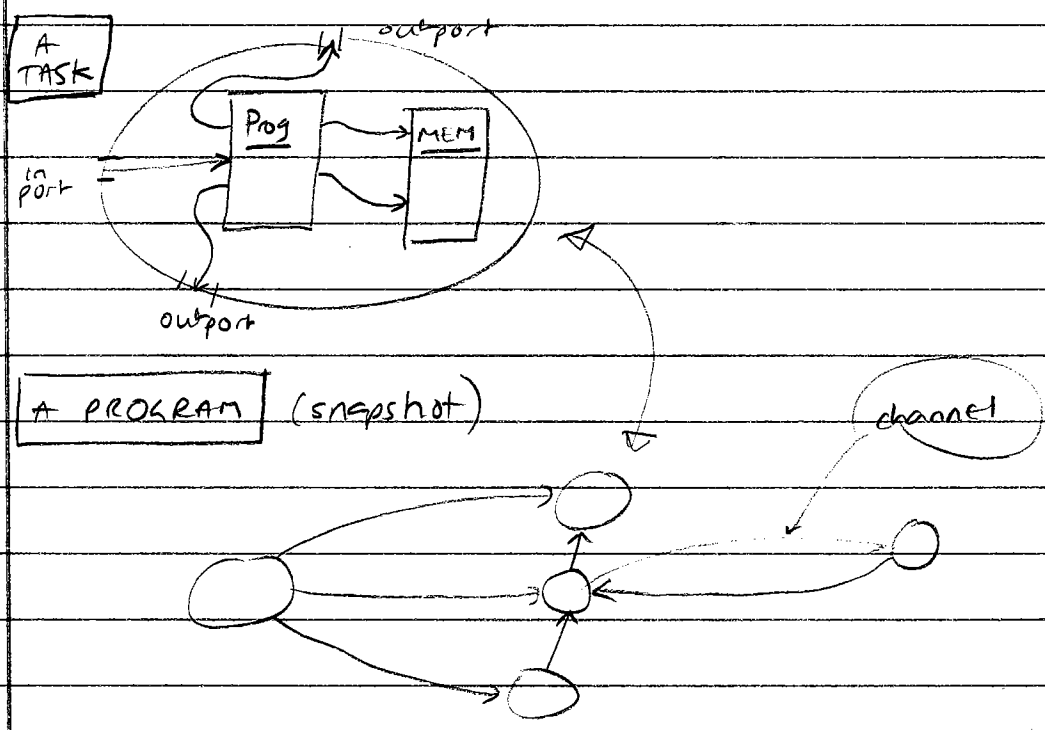 outport
A
TASK
Prog
MEM
in
port
outport
A PROGRAM (snapshot)
channel